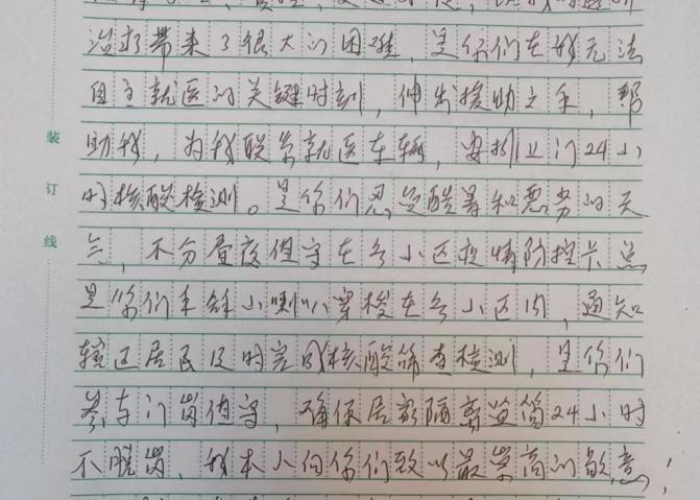 治疗带来了很大的困难,是你们在我无法
自主就医的关键时刻,伸出援助之手,帮
助我,为我联系就医车辆,安排上门24小
时核酸检测。是你们忍受酷暑和恶劣的天
气,不分昼夜值守在各小区疫情防控卡点,
是你们手拿小喇叭穿梭在各小区内,通知
辖区居民及时完成核酸筛查检测,是你们
参与门岗值守,确保居家隔离监管24小时
不脱岗,我本人向你们致以最崇高的敬意!
装
订
线